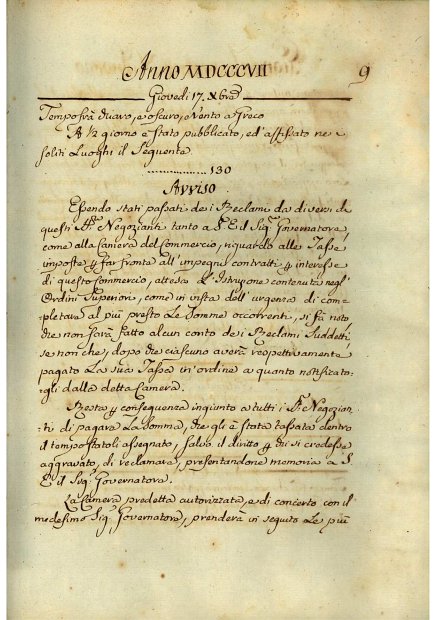 Anno MDCCCVII
9
Giovedì 17. Xbre
Tempo frà chiaro, e oscuro, e Vento a Greco
A ½ giorno è stato pubblicato, ed' affissato ne
soliti Luoghi il Seguente
130
Avviso
Essendo stati passati dei Reclami da diversi di
questi SS.ri Negozianti tanto a S. E. il Sig.r Governatore,
come alla Camera del Commercio, riguardo alle Tasse
imposte p far fronte all'impegni contratti p interesse
di questo Commercio, attesa L'Istruzione contenuta negl'
Ordini Superiori, come in vista dell'urgenza di com=
pletare al più presto Le Somme occorrenti, si fà noto
che non sarà fatto alcun conto dei Reclami Suddetti,
se non che, dopo che ciascuno averà respettivamente
pagato La sua Tassa in' ordine a quanto notificato=
gli dalla detta Camera.
Resta p conseguenza ingiunto a tutti i SS.ri Negozian=
ti di pagare La Somma, che gli è stata tassata dentro
il tempo statoli assegnato, salvo il diritto p chi si credesse
aggravato, di reclamare, presentandone memoria a S.
E. il Sig.r Governatore.
La Camera predetta autorizzata, e di concerto con il
medesimo Sig.r Governatore, prenderà in seguito Le più